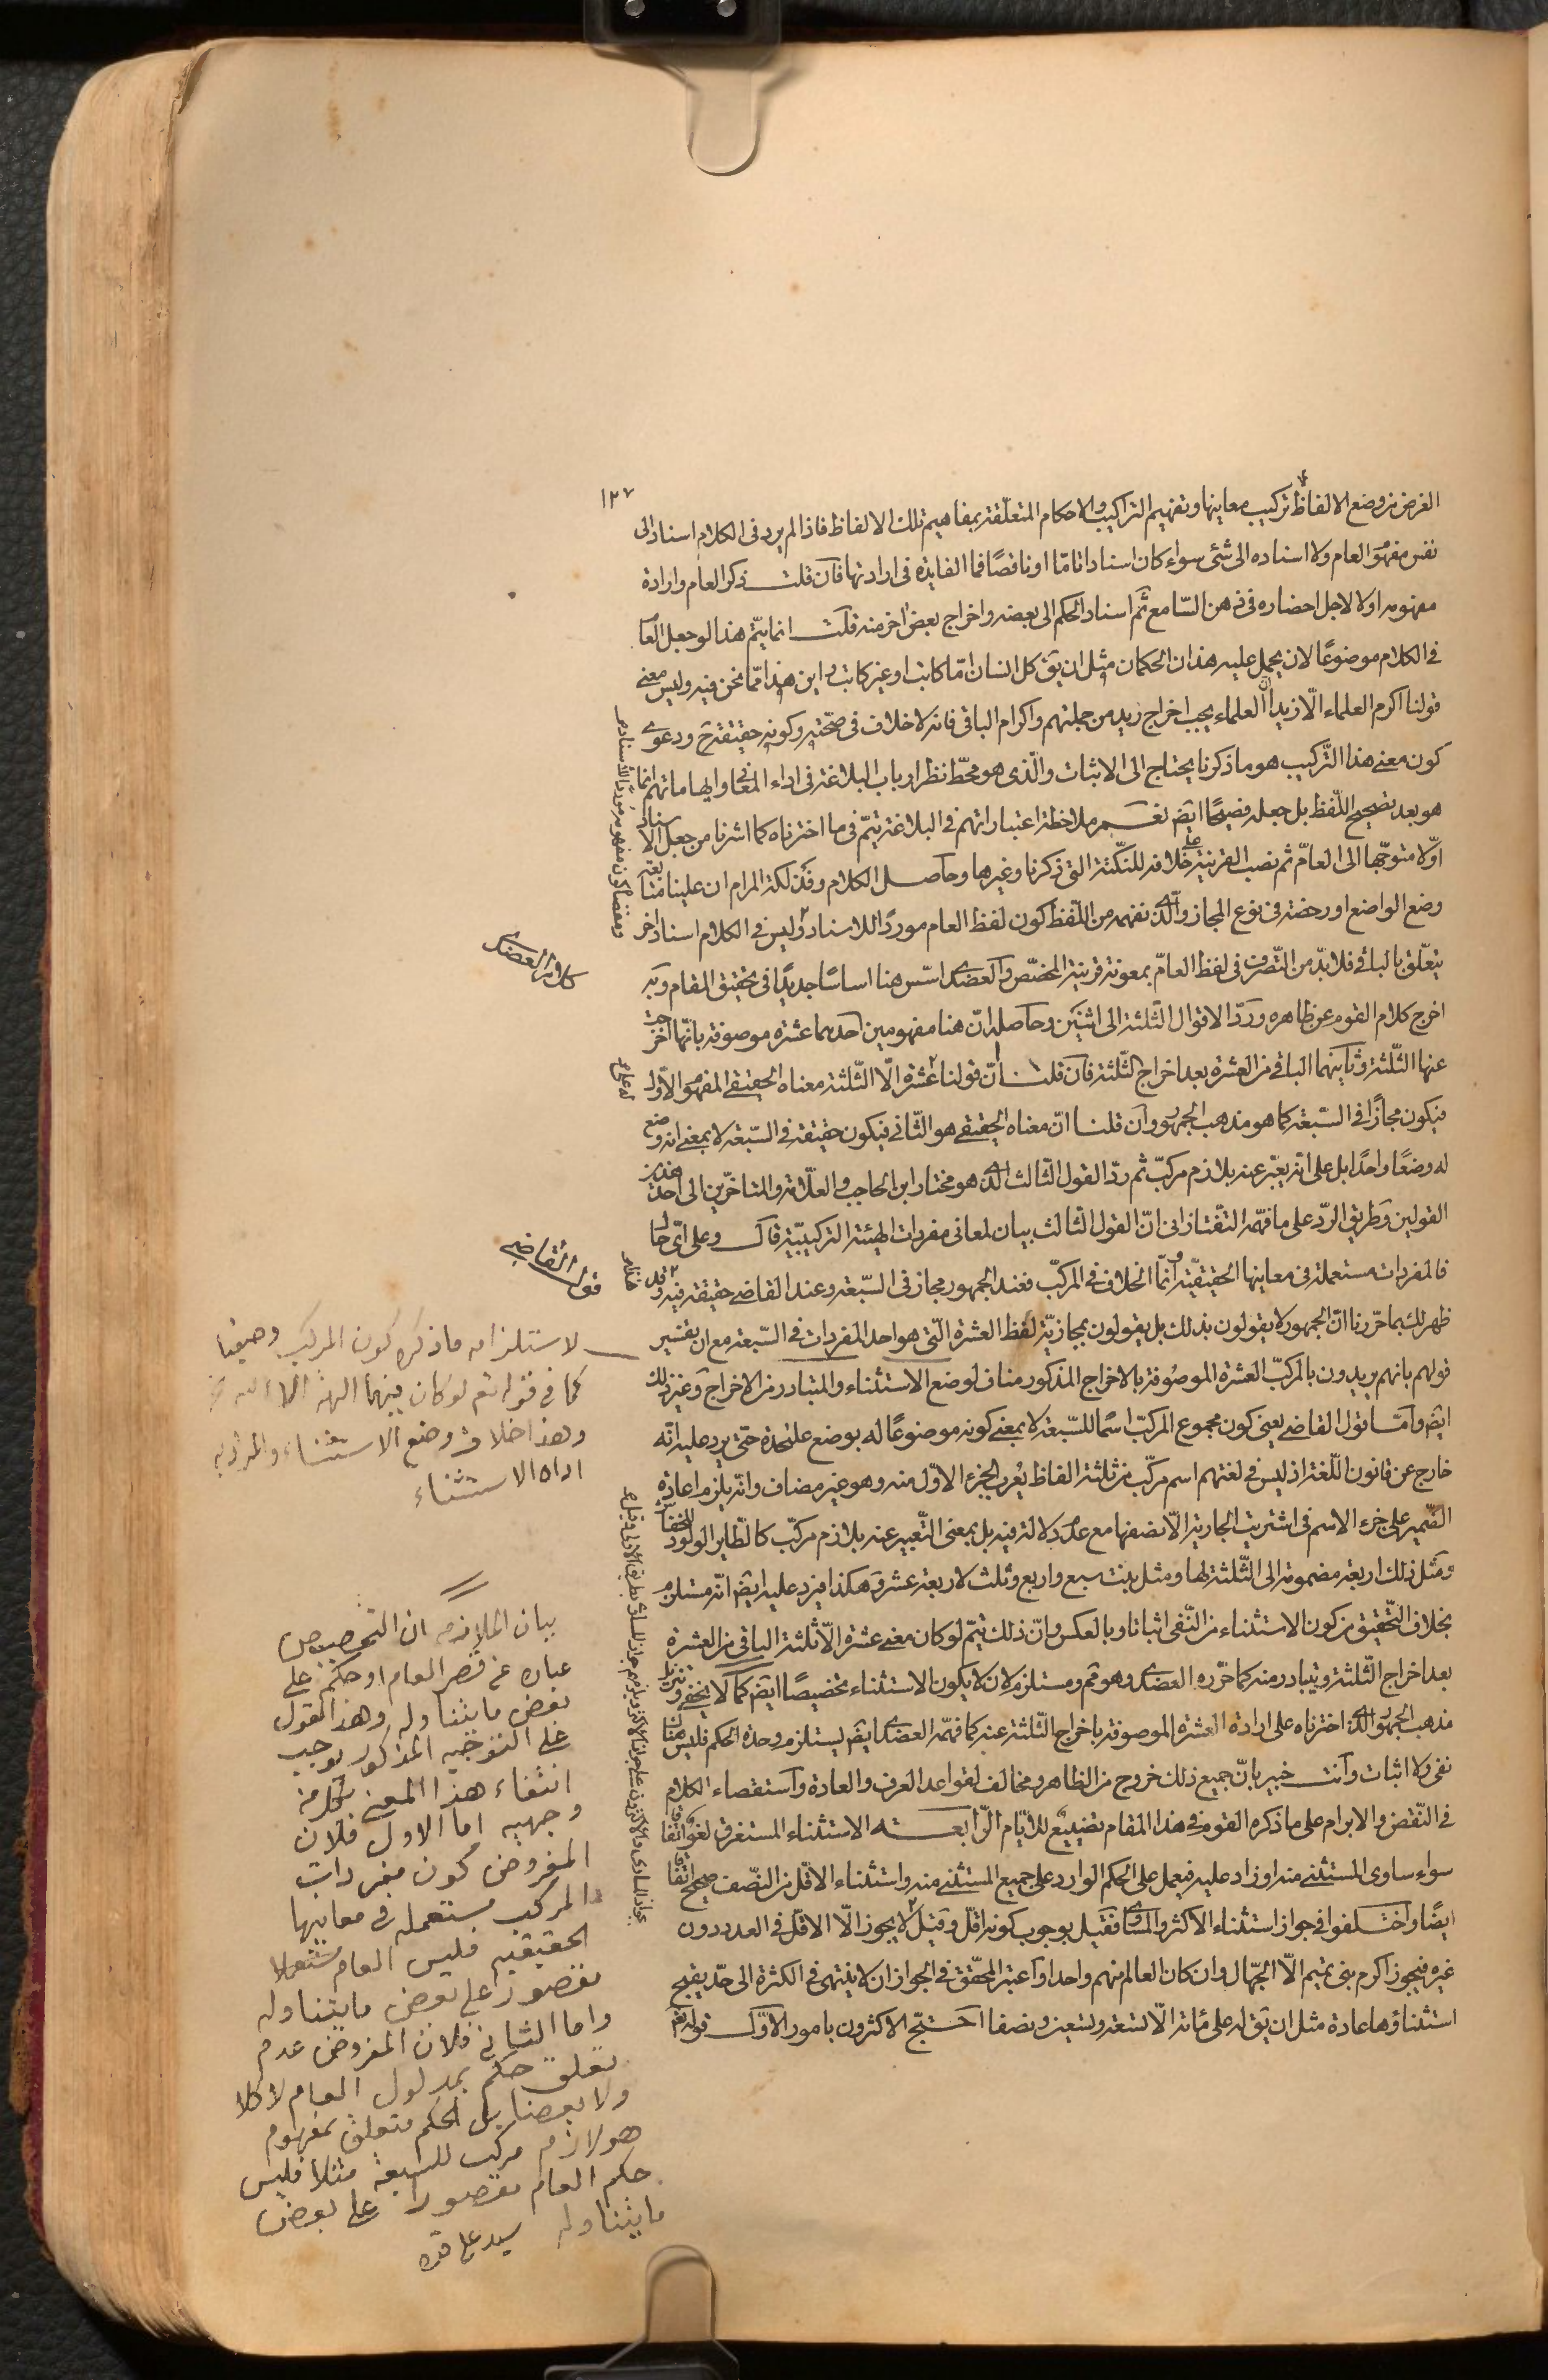 ١٢٧
الغرض من وضع الالفاظ تركيب معانيها وتفهيم التراكيب والاحكام المتعلّقة بمفاهيم تلك الالفاظ فاذا لم يرد فى الكلام اسناد الى
نفس مفهوم العام ولا اسناده الى شئ سواء كان اسنادا تامّا او ناقصًا فما الفايدة فى ارادتها فان قلت ذكر العام وارادة
مفهومه اولا لاجل احضاره فى ذهن السّامع ثم اسناد الحكم الى بعضه واخراج بعض اخر منه قلت انما يتمّ هذا لو جعل العام
فى الكلام موضوعًا لان يحمل عليه هذان الحكمان مثل ان يق كل انسان امّا كاتب او غير كاتب واين هذا ممّا نحن فيه وليس معنى
قولنا اكرم العلماء الّا زيدا انّ العلماء يجب اخراج زيد من جملتهم واكرام الباقى فانه لا خلاف فى صحّته وكونه حقيقة ح ودعوى
كون معنى هذا التّركيب هو ما ذكرنا يحتاج الى الاثبات والّذى هو محطّ نظر ارباب البلاغة فى اداء المعانى وايهاماتهم انما
هو بعد تصحيح اللّفظ بل جعله فصيحًا ايض نعم ملاحظة اعتباراتهم فى البلاغة يتمّ فى ما اخترناه كما اشرنا من جعل الاسناد
اوّلا متوجّها الى العامّ ثم نصب القرينة على خلافه للنكتة التى ذكرنا وغيرها وحاصل الكلام وفذلكة المرام ان علينا متابعة
وضع الواضع او رخصته فى نوع المجاز والّذى نفهمه من اللّفظ كون لفظ العام موردًا للاسناد وليس فى الكلام اسناد اخر
يتعلّق بالباقى فلا بدّ من التّصرف فى لفظ العامّ بمعونة قرينة المخصّص والعضدى اسّس هنا اساسًا جديدًا فى تحقيق المقام وبه
اخرج كلام القوم عن ظاهره وردّ الاقوال الثّلثة الى اثنين وحاصله انّ هنا مفهومين احدهما عشرة موصوفة بانّها اخرجت
عنها الثّلثة وثانيهما الباقى من العشرة بعد اخراج الثّلثة فان قلنا انّ قولنا عشرة الّا الثّلثة معناه الحقيقى المفهوم الاوّل
فيكون مجازًا فى السّبعة كما هو مذهب الجمهور وان قلنا انّ معناه الحقيقى هو الثّانى فيكون حقيقة فى السّبعة لا بمعنى انه وضع
له وضعًا واحدًا بل على انّه يعبّر عنه بلازم مركّب ثم ردّ القول الثّالث الّذى هو مختار ابن الحاجب والعلّامة والمتاخّرين الى احد هذين
القولين وطريق الردّ على ما فهمه التفتازانى انّ القول الثالث بيان لمعانى مفردات الهيئة التركيبيّة قال وعلى اىّ حال
فالمفردات مستعملة فى معانيها الحقيقيّة وانّما الخلاف فى المركّب فعند الجمهور مجاز فى السّبعة وعند القاضى حقيقة فيه وقد
ظهر لك بما حرّرنا انّ الجمهور لا يقولون بذلك بل يقولون بمجازيّة لفظ العشرة الّتى هو احد المفردات فى السّبعة مع ان تفسير
قولهم بانهم يريدون بالمركّب العشرة الموصُوفة بالاخراج المذكور مناف لوضع الاستثناء والمتبادر من الاخراج وغير ذلك
ايض وامّا قول القاضى يعنى كون مجموع المركّب اسمًا للسّبعة لا بمعنى كونه موضوعًا له بوضع علىحدة حتّى يرد عليه انّه
خارج عن قانون اللّغة اذ ليس فى لغتهم اسم مركّب من ثلثة الفاظ يُعرب الجزء الاوّل منه وهو غير مضاف وانّه يلزم اعادة
الضّمير على جزء الاسم فى اشتريت الجارية الّا نصفها مع عدم دلالته فيه بل بمعنى التّعبير عنه بلازم مركّب كالطّاير الولود للخفاش
ومثل ذلك اربعة مضمومة الى الثّلثة لها ومثل بنت سبع واربع وثلث لاربعة عشر وهكذا فيرد عليه ايض انّه مستلزم
بخلاف التّحقيق من كون الاستثناء من النّفى اثباتا وبالعكس وانّ ذلك يتمّ لو كان معنى عشرة الّا ثلثة الباقى من العشرة
بعد اخراج الثّلثة ويتبادر منه كما حرّره العضدى وهو مم ومستلزم لان لا يكون الاستثناء تخصيصًا ايض كما لا يخفى وتنزيل
مذهب الجمهور الّذى اخترناه على ارادة العشرة الموصوفة باخراج الثّلثة عنه كما فهمه العضدى ايض يستلزم وحدة الحكم فليس هناك
نفى ولا اثبات وانت خبير بانّ جميع ذلك خروج من الظاهر ومخالف لقواعد العرف والعادة واستقصاء الكلام
فى النّقض والابرام على ما ذكره القوم فى هذا المقام تضييع للايّام الرّابعة الاستثناء المستغرق لغو اتّفاقا
سواء ساوى المستثنى منه او زاد عليه فيعمل على الحكم الوارد على جميع المستثنى منه واستثناء الاقلّ من النّصف صحيح اتّفاقا
ايضًا واختلفوا فى جواز استثناء الاكثر والمساوى فقيل بوجوب كونه اقلّ وقيل لا يجوز الّا الاقلّ فى العدد دون
غيره فيجوز اكرم بنى تميم الّا الجهّال وان كان العالم منهم واحدا واعتبر المحقّق فى الجواز ان لا ينتهى فى الكثرة الى حدّ يقبح
استثناؤها عادة مثل ان يق له على مائة الّا تسعة وتسعين ونصفا احتجّ الاكثرون بامور الاوّل قوله تعم
كلام العضدى
قول القاضى
لاستلزامه ماذكره كون المركب وصفيا
كما فى قوله تعم لو كان فيهما الهة الا الله
وهذا خلاف وضع الاستثناء
اداه الاستثناء
بيان الملازمه ان التخصيص
عباره عن قصر العام او حكمه على
بعض ما يتناوله وهذا القول
على التوجيه المذكور يوجب
انتفاء هذا المعنى بكل من
وجهيه اما الاول فلان
المفروض كون مفردات
المركب مستعمله فى معانيها
الحقيقيه فليس العام مستعملا
مقصورا على بعض ما يتناوله
واما الثانى فلان المفروض عدم
تعلق حكم بمدلول العام لا كلا
ولا بعضا بل الحكم متعلق بمفهوم
هو لازم مركب للسبعة مثلا فليس
حكم العام مقصورا على بعض
ما يتناوله سيد على قده